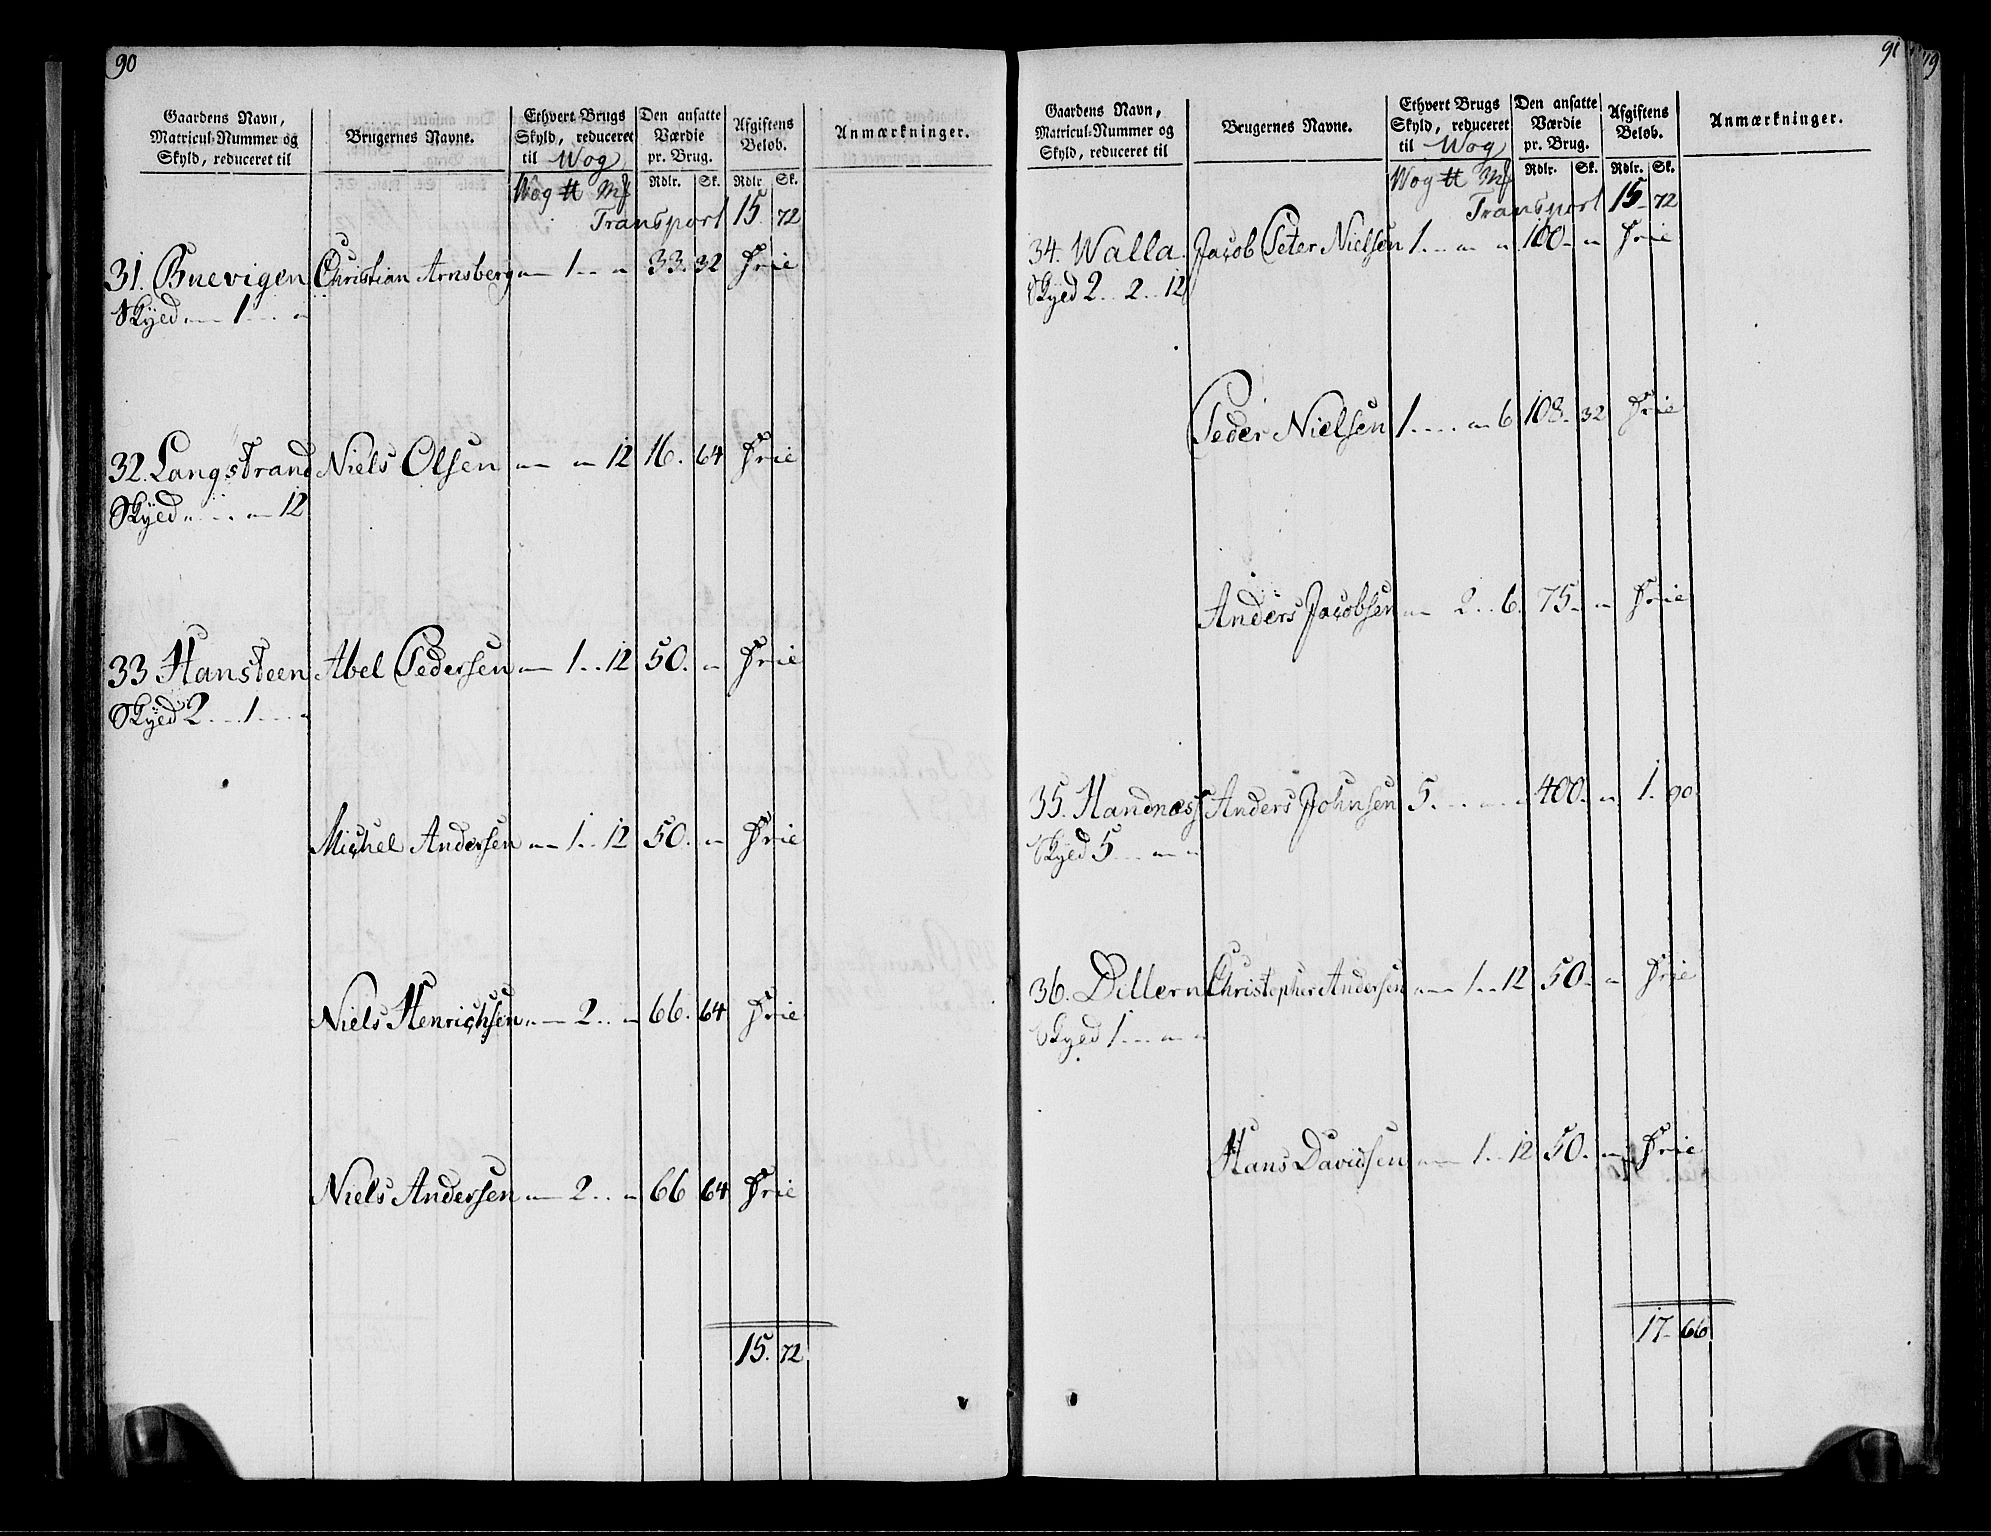 90
Gaardens Navn, Matricul-Nummer og Skyld, reduceret til
Brugernes Navne.
Ethvert Brugs Skyld, reduceret til Wog
Den ansatte Værdie pr. Brug.
Afgiftens Beløb.
Anmærkninger.
Wog ℔ Mƒ Rdlr. Sk. Rdlr. Sk.
Transport 15. 72
31. Buevigen Christian Arnsberg „ 1 .. „ 33. 32 Frie
Skyed „ 1 .... „
32. Langstrand Niels Olsen „ „ 12 16. 64 Frie
Skyed „ .. „ 12
33 Hansteen Abel Pedersen „ 1 .. 12 50. „ Frie
Skyed 2 ... 1 .... „
Michel Andersen „ 1 .. 12 50. „ Frie
Niels Henrichsen „ 2 .. „ 66. 64 Frie
Niels Andersen „ 2 .. „ 66 64 Frie
15. 72
91
Gaardens Navn, Matricul-Nummer og Skyld, reduceret til
Brugernes Navne.
Ethvert Brugs Skyld, reduceret til Wog
Den ansatte Værdie pr. Brug.
Afgiftens Beløb.
Anmærkninger.
Wog ℔ Mƒ Rdlr. Sk. Rdlr. Sk.
Transport 15 72
34. Walla Jacob Peter Nielsen 1 ... „ „ 100 „ Frie
Skyed 2 .. 2 .. 12
Peder Nielsen 1 .... „ 6 108. 32 Frie
Anders Jacobsen „ 2 .. 6. 75 „ Frie
35. Handnæss Anders Johnsen 5 ... „ „ 400 „ 1. 90
Skyed 5 ... „ „
36. Dillern Christopher Andersen „ 1 .. 12 50 „ Frie
Skyed 1 ... „ „
Hans Davidsen „ 1 .. 12 50. „ Frie
17 66